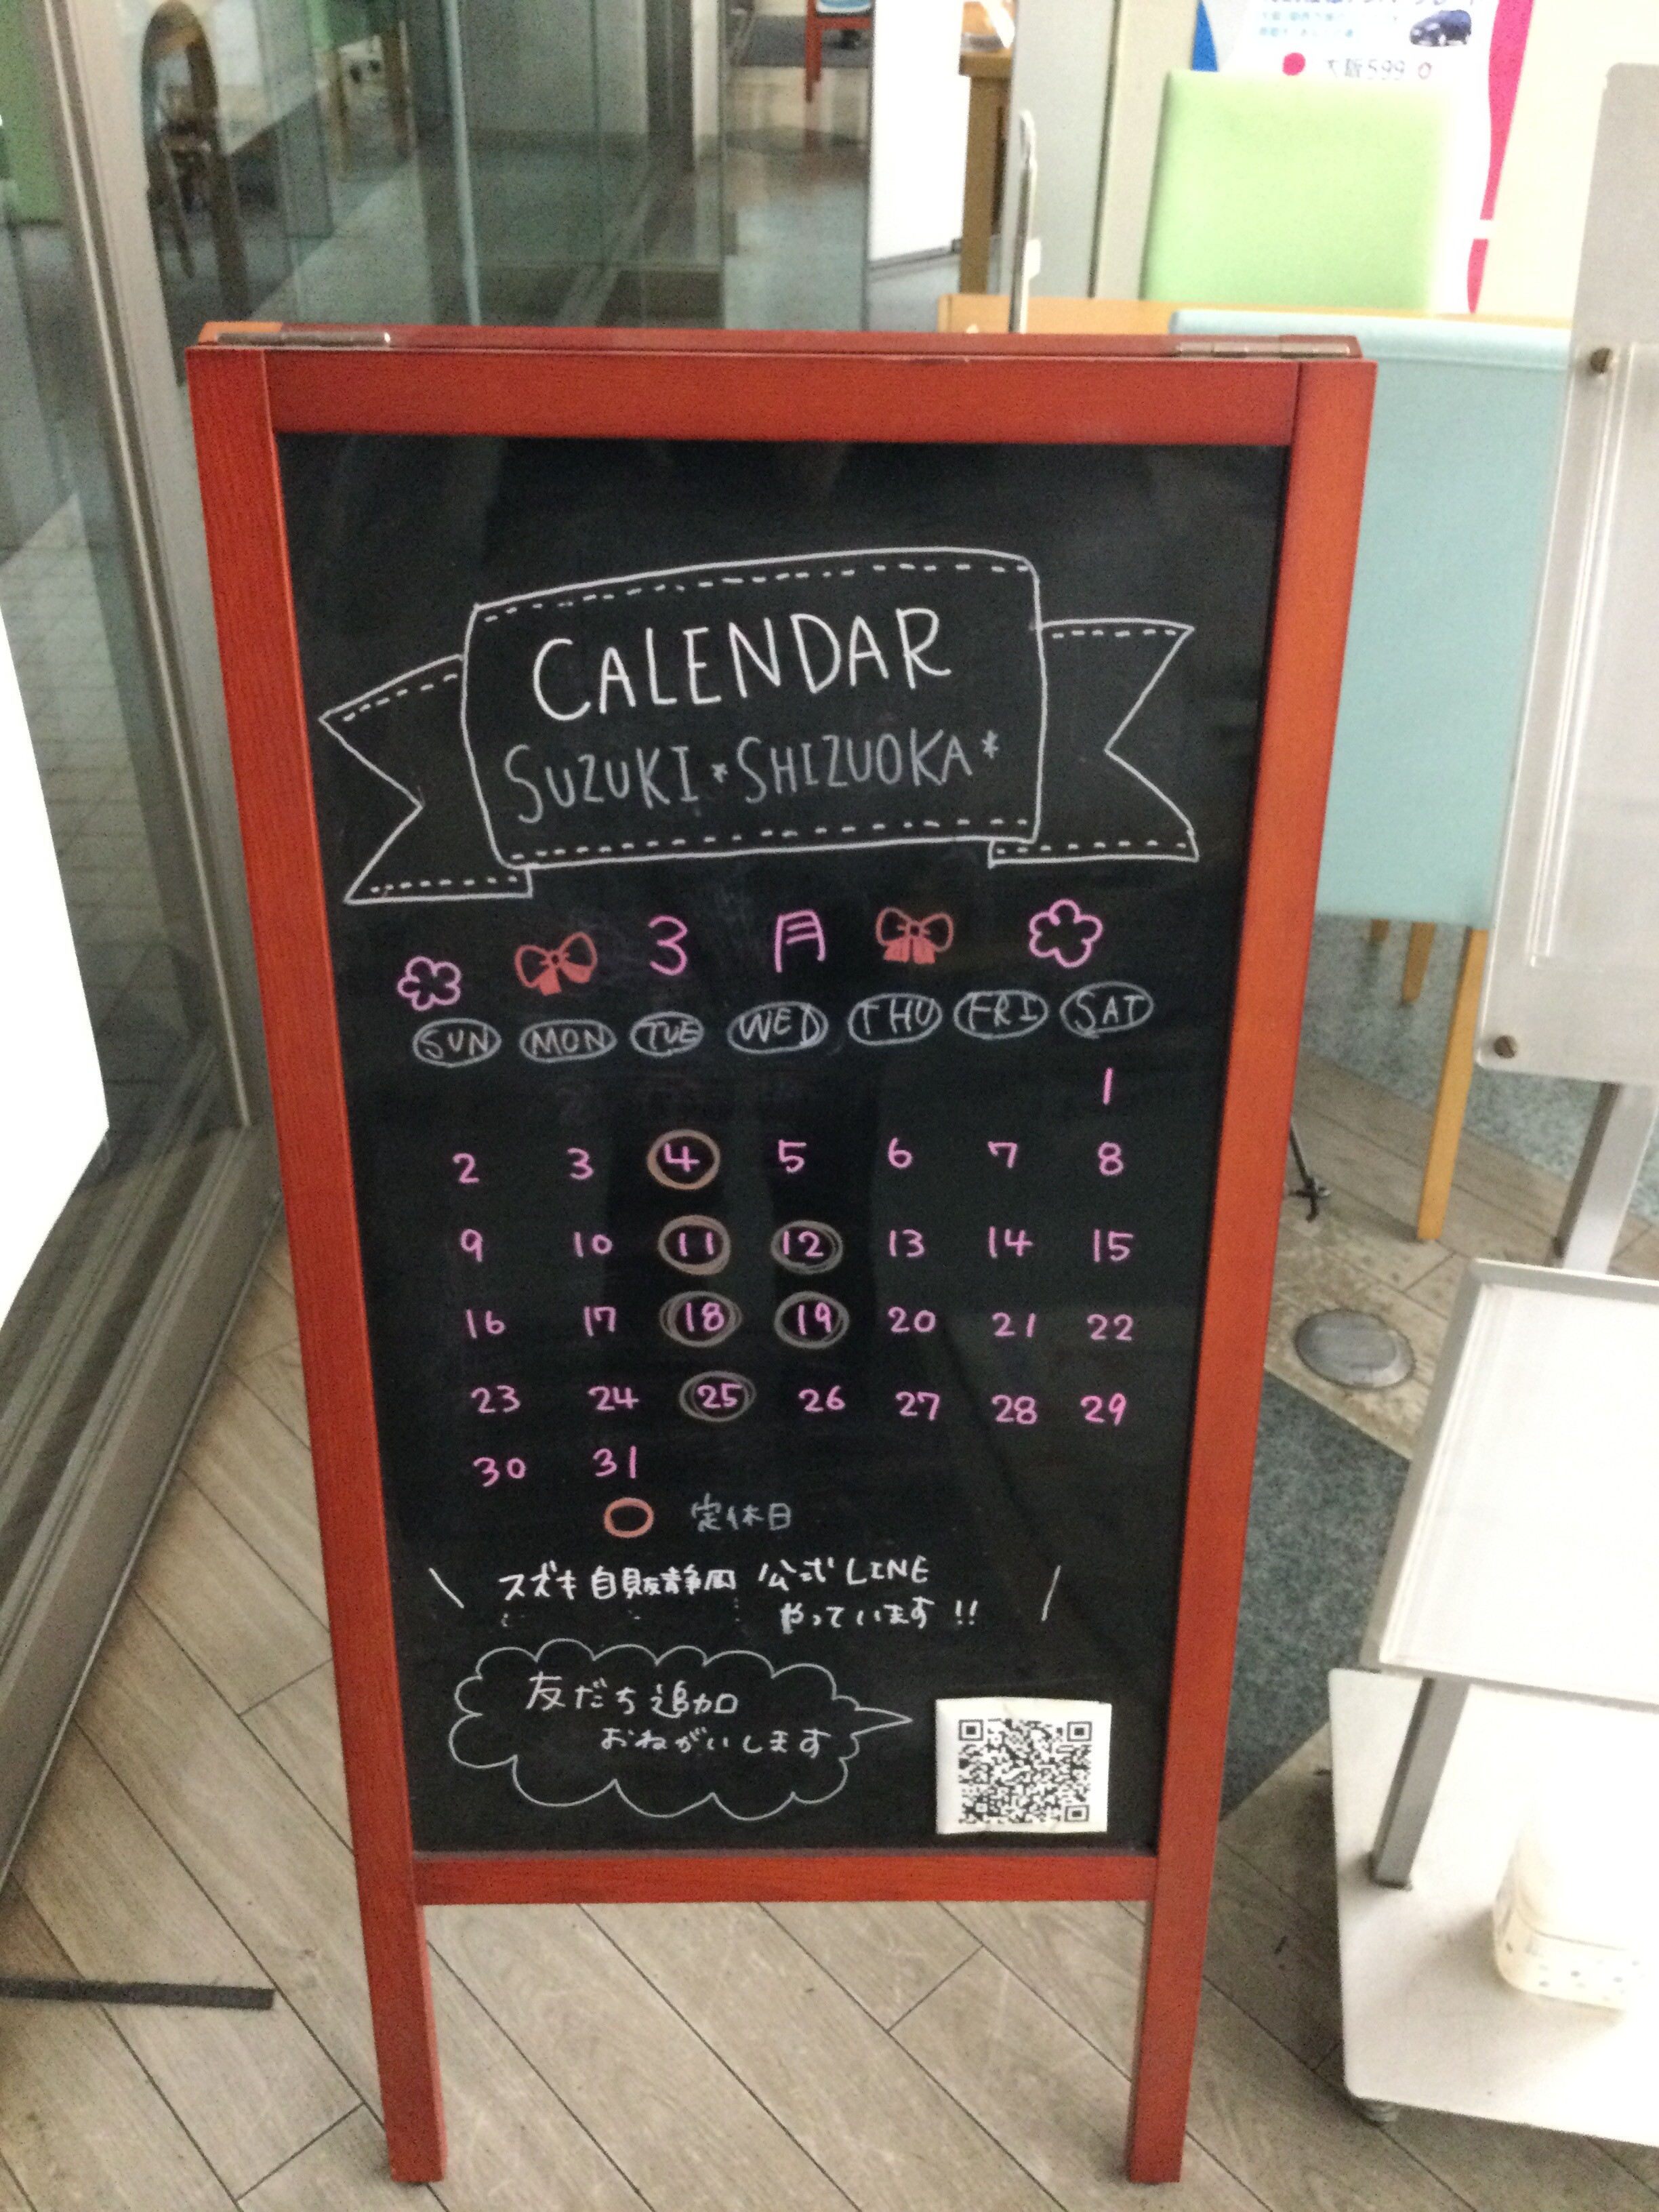 大阪599
CALENDAR
SUZUKI*SHIZUOKA*
3月
SUN MON TUE WED THU FRI SAT
1
2 3 4 5 6 7 8
9 10 11 12 13 14 15
16 17 18 19 20 21 22
23 24 25 26 27 28 29
30 31
定休日
スズキ自販静岡 公式LINE
やっています!!
友だち追加
おねがいします